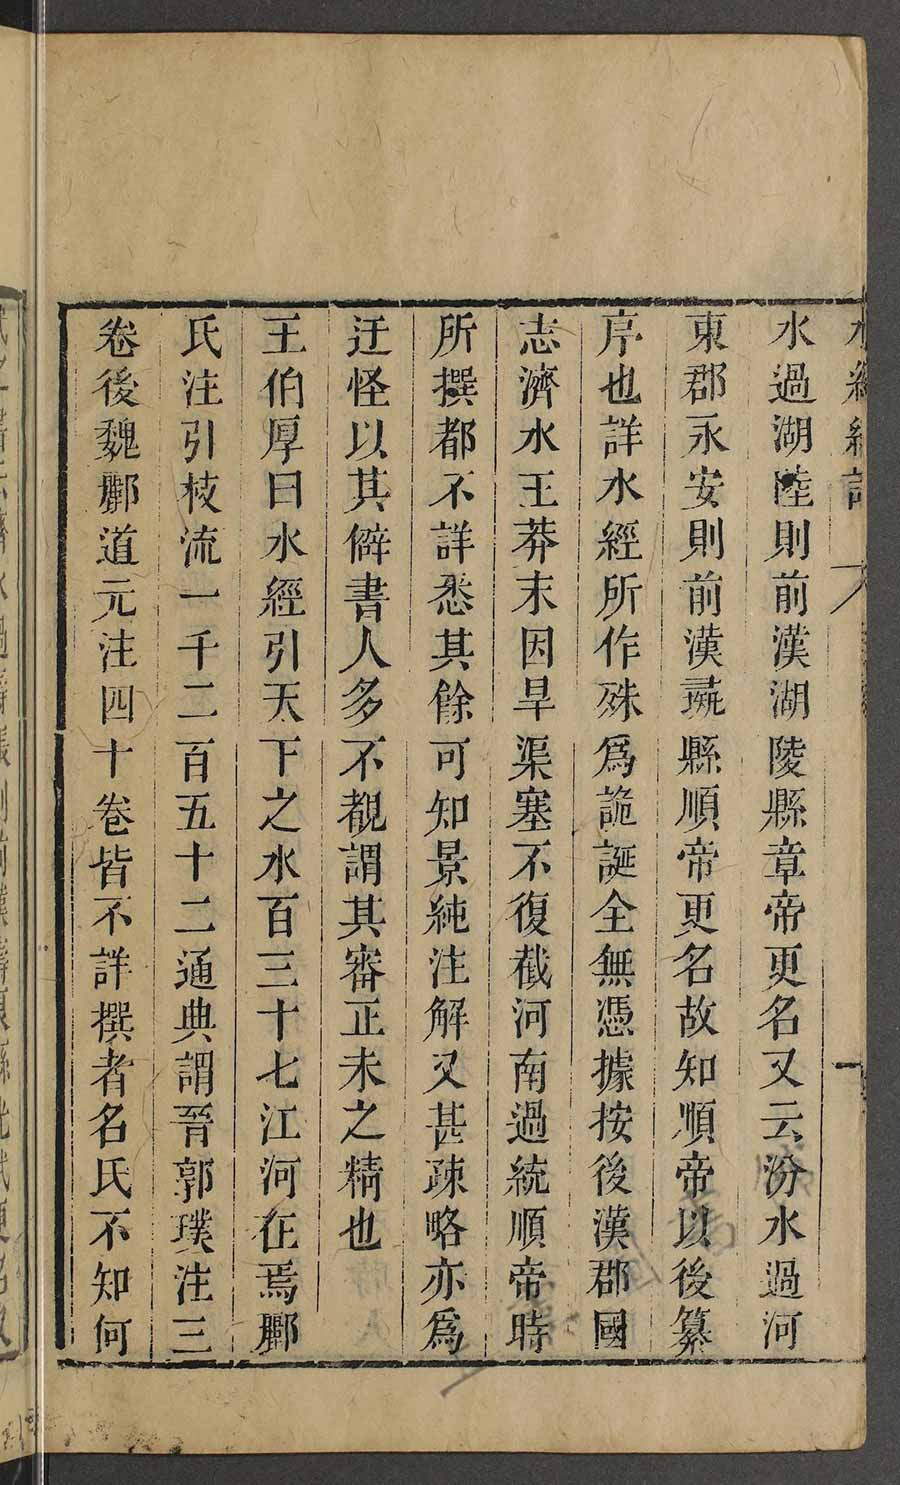 水過湖陸則前漢湖陵縣章帝更名又云汾水過河
東郡永安則前漢彘縣順帝更名故知順帝以後纂
序也詳水經所作殊爲詭誕全無憑據按後漢郡國
志濟水王莽末因旱渠塞不復截河南過統順帝時
所撰都不詳悉其餘可知景純注解又甚疎略亦爲
迂怪以其僻書人多不覩謂其審正未之精也
王伯厚曰水經引天下之水百三十七江河在焉酈
氏注引枝流一千二百五十二通典謂晉郭璞注三
卷後魏酈道元注四十卷皆不詳撰者名氏不知何